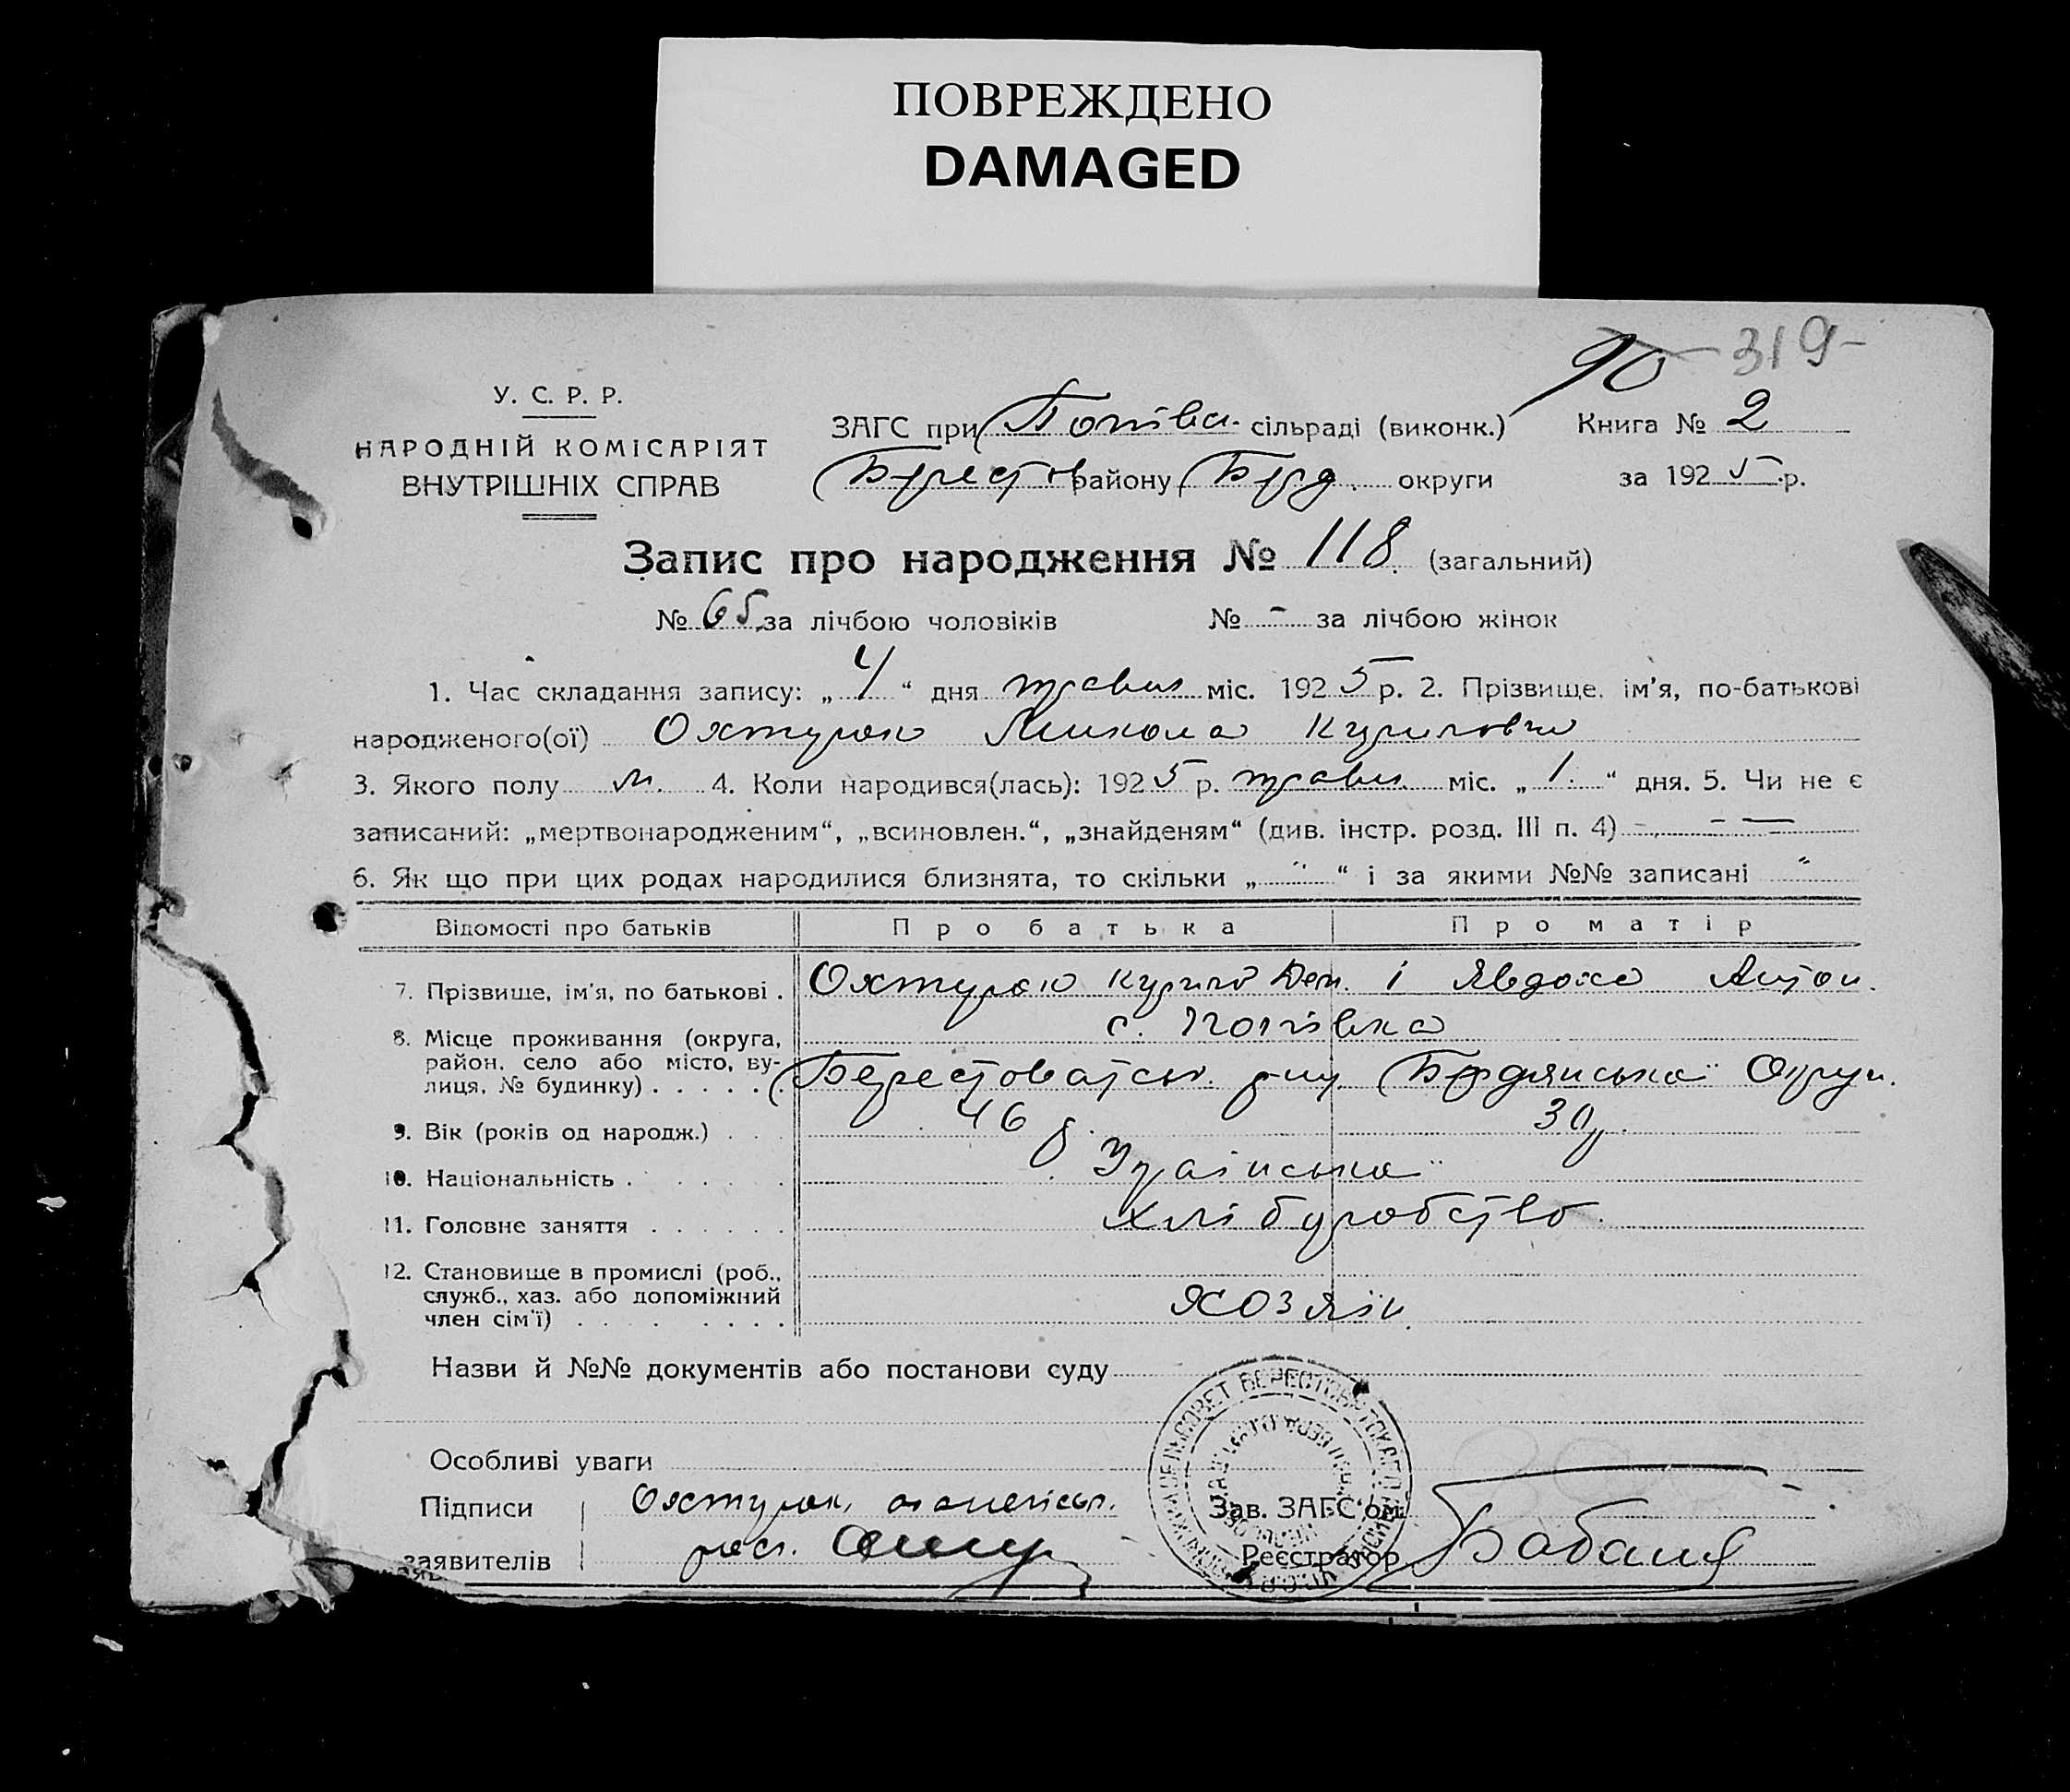 ПОВРЕЖДЕНО
DAMAGED
90 319-
У. С. Р. Р.
НАРОДНІЙ КОМІСАРІЯТ
ВНУТРІШНІХ СПРАВ
ЗАГС при Попівсь. сільраді (виконк.) Книга № 2
Берестов району Берд. округи за 1925 р.
Запис про народження № 118. (загальний)
№ 65 за лічбою чоловіків № - за лічбою жінок
1. Час складання запису: „ 4 “ дня травня міс. 1925 р. 2. Прізвище, ім'я, по-батькові
народженого(ої) Микола Курилович
3. Якого полу м. 4. Коли народився(лась): 1925 р. травня міс. „ 1. “ дня. 5. Чи не є
записаний: „мертвонародженим“, „всиновлен.“, „знайденям“ (див. інстр. розд. III п. 4) - —
6. Як що при цих родах народилися близнята, то скільки „ “ і за якими №№ записані "
Відомості про батьків Про батька Про матір
7. Прізвище, ім'я, по батькові . Курило Дем. і Явдоха Антон.
с. Попівка
8. Місце проживання (округа,
район, село або місто, ву-
лиця, № будинку) . . . . . Берестоватськ. р-ну Бердянської Округи.
9. Вік (років од народж.) . . . 46 р. 30 р.
10. Національність . . . . . Українська
11. Головне заняття . . . . . . Хліборобство.
12. Становище в промислі (роб.,
служб., хаз. або допоміжний
член сім'ї) . . . . . . . . хозяїн.
Назви й №№ документів або постанови суду
Особливі уваги
Підписи
заявителів
Зав. ЗАГС'ом
Реєстратор